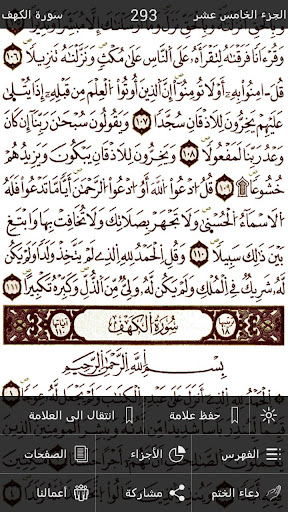 الجزء الخامس عشر 293 سورة الكهف
وَقُرْءَانًا فَرَقْنَٰهُ لِتَقْرَأَهُۥ عَلَى ٱلنَّاسِ عَلَىٰ مُكْثٍ وَنَزَّلْنَٰهُ تَنزِيلًا ١٠٦
قُلْ ءَامِنُوا۟ بِهِۦٓ أَوْ لَا تُؤْمِنُوٓا۟ إِنَّ ٱلَّذِينَ أُوتُوا۟ ٱلْعِلْمَ مِن قَبْلِهِۦٓ إِذَا يُتْلَىٰ
عَلَيْهِمْ يَخِرُّونَ لِلْأَذْقَانِ سُجَّدًا ١٠٧ وَيَقُولُونَ سُبْحَٰنَ رَبِّنَآ إِن كَانَ
وَعْدُ رَبِّنَا لَمَفْعُولًا ١٠٨ وَيَخِرُّونَ لِلْأَذْقَانِ يَبْكُونَ وَيَزِيدُهُمْ
خُشُوعًا ١٠٩ قُلِ ٱدْعُوا۟ ٱللَّهَ أَوِ ٱدْعُوا۟ ٱلرَّحْمَٰنَ أَيًّا مَّا تَدْعُوا۟ فَلَهُ
ٱلْأَسْمَآءُ ٱلْحُسْنَىٰ وَلَا تَجْهَرْ بِصَلَاتِكَ وَلَا تُخَافِتْ بِهَا وَٱبْتَغِ
بَيْنَ ذَٰلِكَ سَبِيلًا ١١٠ وَقُلِ ٱلْحَمْدُ لِلَّهِ ٱلَّذِى لَمْ يَتَّخِذْ وَلَدًا وَلَمْ يَكُن
لَّهُۥ شَرِيكٌ فِى ٱلْمُلْكِ وَلَمْ يَكُن لَّهُۥ وَلِىٌّ مِّنَ ٱلذُّلِّ وَكَبِّرْهُ تَكْبِيرًا ١١١
ترتيبها ١٨ سُورَةُ الكَهْفِ آياتها ١١٠
بِسْمِ ٱللَّهِ ٱلرَّحْمَٰنِ ٱلرَّحِيمِ
ٱلْحَمْدُ لِلَّهِ ٱلَّذِىٓ أَنزَلَ عَلَىٰ عَبْدِهِ ٱلْكِتَٰبَ وَلَمْ يَجْعَل لَّهُۥ عِوَجَا ١
حفظ علامة انتقال الى العلامة
الفهرس الأجزاء الصفحات
دعاء الختم مشاركة أعمالنا